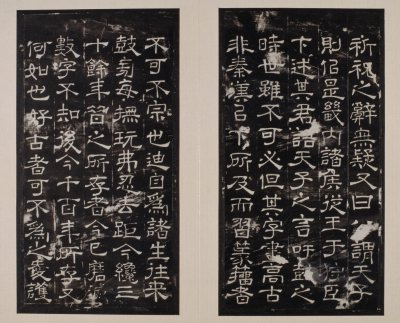 祈祝之辭無疑又曰謂天子
則佰是畿内諸侯從王于狩臣
下述其君語天子之言吁鼓之
時世雖不可必但其字畫高古
非秦漢以下所及而習篆籀者
不可不宗也迪自爲諸生往來
鼓旁每撫玩弗忍去距今纔三
十餘年昔之所存者今已磨
數字不知後今千百年所存又
何如也好古者可不爲之愛護